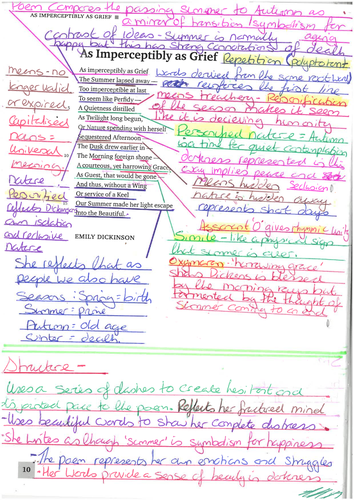 Poem Compares the passing summer to Autumn as
AS IMPERCEPTIBLY AS GRIEF
a mirror of transition/symbolism for
aging
Contrast of ideas - Summer is normally
happy but this has strong connotations of death
As Imperceptibly as Grief
Repetition (Polyptoton)
As imperceptibly as Grief
The Summer lapsed away —
Too imperceptible at last
To seem like Perfidy —
A Quietness distilled
As Twilight long begun,
Or Nature spending with herself
Sequestered Afternoon —
The Dusk drew earlier in —
The Morning foreign shone —
A courteous, yet harrowing Grace,
As Guest, that would be gone —
And thus, without a Wing
Or service of a Keel
Our Summer made her light escape
Into the Beautiful. -
EMILY DICKINSON
means - no
longer valid
or expired
Capitalised
nouns =
universal
meaning
Nature -
Personified
reflects Dickinsons
own isolation
and reclusive
nature
She reflects that as
people we also have
Seasons : Spring = birth
Summer = prime
Autumn = old age
Winter = death
words derived from the same root word
reinforces the first line
means treachery - Personification
of the season makes it seem
like it is decieving humanity
Personified nature = Autumn
was a time for quiet contemplation
darkness represented in the
day implies peace
Means hidden
Seclusion
nature is hidden away
represents short days
Assonant 'O' gives rhymic unity
Simile - like a physical sign
that summer is over.
Oxymoron - 'harrowing grace'
shows Dickens is blessed
by the morning rays but
tormented by the thought of
Summer coming to an end
Structure -
Uses a series of dashes to create hesitant and
disjointed pace to the poem. Reflects her fractured mind
- Uses beautiful words to show her complete distress
- She writes as though 'summer' is symbolism for happiness
- The poem represents her own emotions and struggles
- Her words provide a sense of beauty in darkness
10